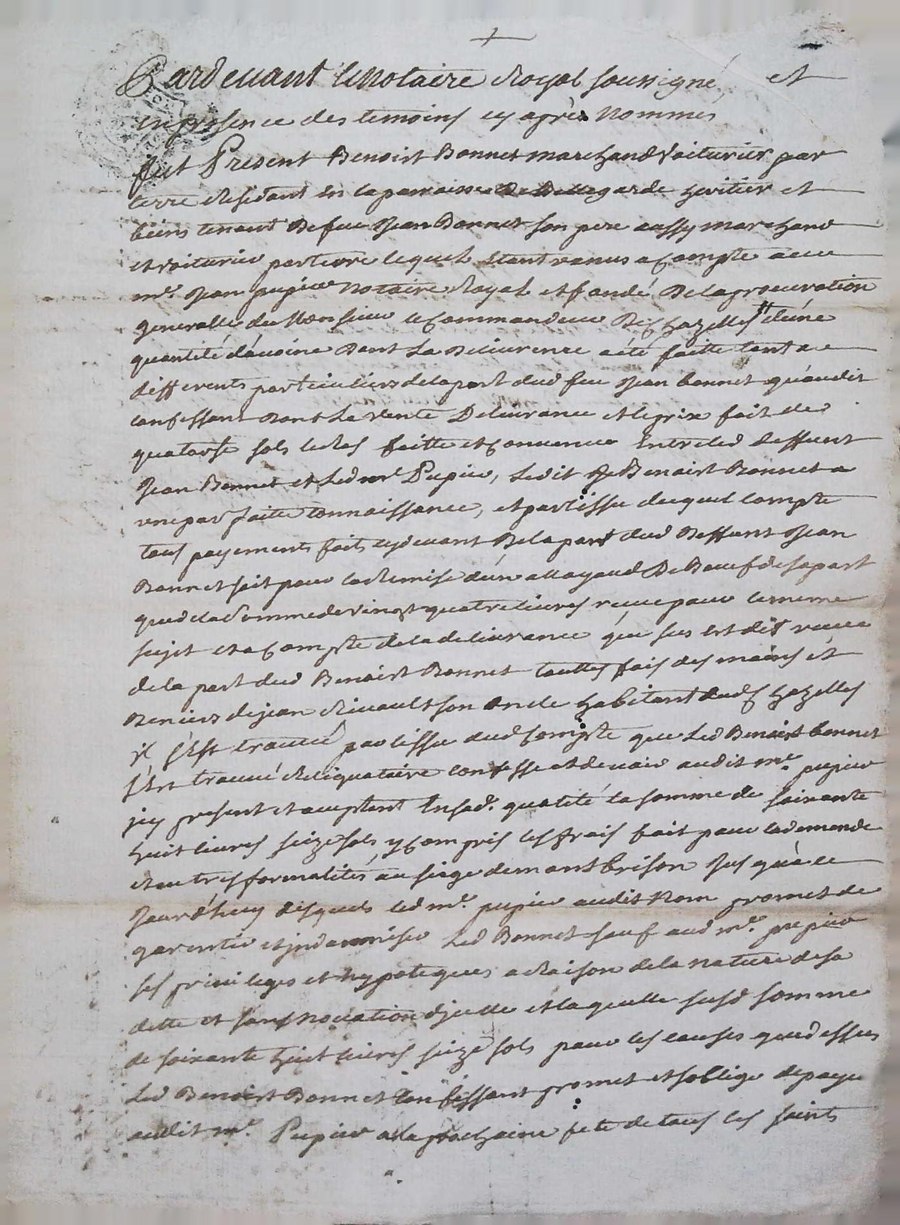 Pardevant le Notaire Royal soussigné, et
en presence des temoins cy après Nommes
fut Present Benoist Bonnet marchand voiturier par
terre Residant en la parroisse de Bellegarde heritier et
biens tenant de feu Jean Bonnet son pere aussy marchand
et voiturier par terre lequel etant venus a Compte avec
me. Jean pupier Notaire Royal et fondé de la procuration
generalle de Monsieur le Commandeur de Chazelles d'une
quantité d'avoine dont la delivrence a été faitte tant a
differents particuliers de la part dud feu Jean bonnet qu'audit
confessant dont la vente delivrance et le prix fait de
quatorse sols le ras faitte et convenue entre led deffunt
Jean Bonnet et led me. Pupier, ledit Benoist Bonnet a
une parfaite connoissance, et par l'issue duquel compte
tous payements faits cydevant de la part dud deffunt Jean
Bonnet soit pour la remise d'un de Boeuf de sa part
que de la somme de vingt quatre livres recue pour le meme
sujet et a Compte de la delivrance que sus est dit recue
de la part dud Benoist Bonnet touttes fois des mains et
deniers de jean Rivault son oncle habitant dud Chazelles
il s'est trouvé par l'issue dud compte que led Benoist bonnet
s'est trouvé reliquataire confesse et devoir audit me. pupier
icy present et acceptant en sad. qualité la somme de soixante
huit livres seize sols y compris les frais fait pour la demande
et autres formalités au siege de montbrison jusqu'a ce
jourd'huy desquels led me. pupier audit Nom promet de
garentir et indamniser led Bonnet sauf aud me. pupier
ses privileges et hypoteques a Raison de la nature de sa
dette et sans Novation d'icelle et laquelle susd somme
de soixante huit livres seize sols pour les causes que dessus
led Benoist Bonnet confessant promet et s'oblige de payer
audit me. Pupier a la prochaine fete de tous les saints